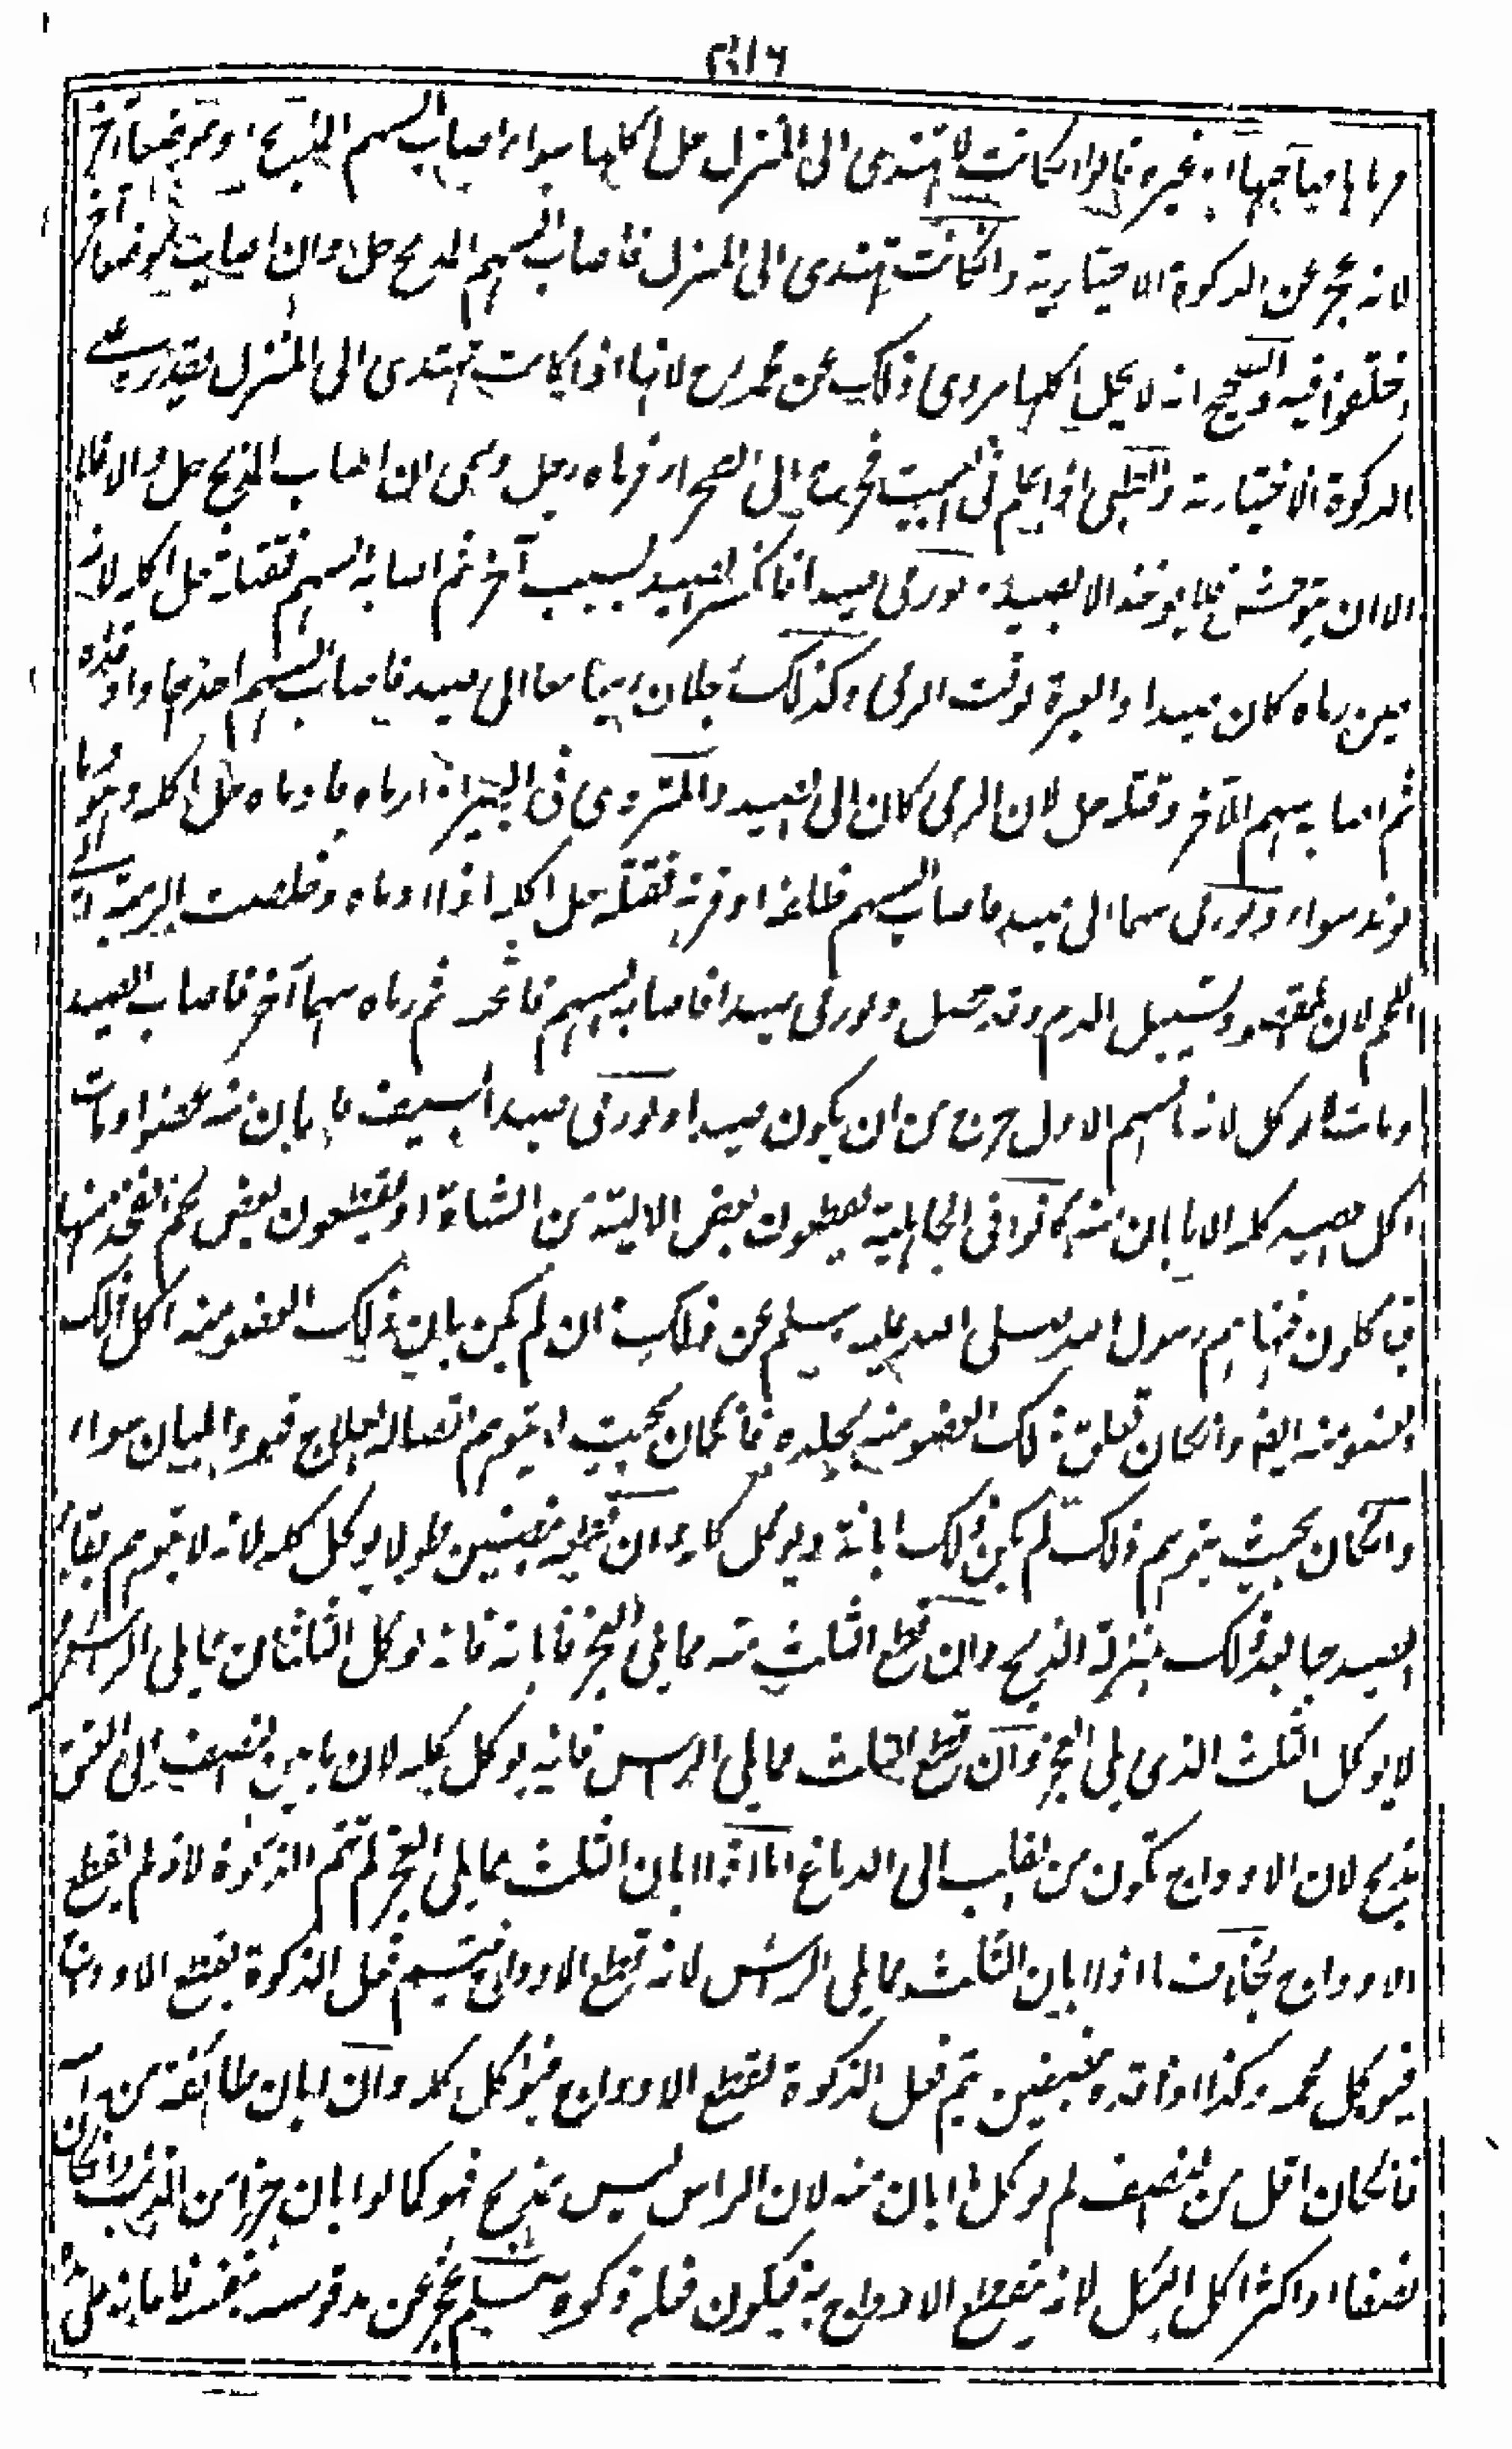 فرماها صاحبها او غيره قالوا ان كانت لا تهتدى الى المنزل حل اكلها سواء اصاب السهم المذبح او موضعا آخر
لانه عجز عن الذكوة الاختيارية وانكانت تهتدى الى المنزل فاصاب السهم المذبح حل وان اصاب موضعا آخر
اختلفوا فيه والصحيح انه لا يحل اكلها مروى ذلك عن محمد رح لانها اذا كانت تهتدى الى المنزل يقدر على
الذكوة الاختيارية والظبى اذا علم فى البيت فخرج الى الصحراء فرماه رجل وسمى ان اصاب المذبح حل والا فلا
الا ان يتوحش فلا يوخذ الا بصيد ولو رمى صيدا فانكسر الصيد بسبب آخر ثم اصابه السهم فقتله حل اكله لانه
حين رماه كان صيدا والعبرة لوقت الرمى وكذلك رجلان رميا معا الى صيد فاصاب سهم احدهما واوقذه
ثم اصابه سهم الآخر وقتله حل لان الرمى كان الى الصيد والمتردى فى البير اذا رماه فادماه حل اكله وهو وما
لوند سواء ولو رمى سهما الى صيد فاصاب السهم ظلفه او قرنه فقتله حل اكله اذا ادماه وخلصت الرمية الى
اللحم لان المقصود تسييل الدم وقد حصل ولو رمى صيدا فاصابه السهم فاثخنه ثم رماه سهما آخر فاصاب الصيد
ومات لا يوكل لانه بالسهم الاول خرج من ان يكون صيدا ولو رمى صيدا بسيف فابان منه عضوا ومات
اكل الصيد كله الا ما ابان منه كانوا فى الجاهلية يقطعون بعض الالية من الشاة او يقطعون بعض لحم الفخذ منها
فياكلون فنهاهم رسول الله صلى الله عليه وسلم عن ذلك وان لم يكن بان ذلك العضو منه اكل ذلك
العضو منه ايضا وانكان تعلق ذلك العضو منه بجلده فانكان بحيث لا يتوهم اتصاله بعلاج فهو والمبان سواء
وانكان بحيث يتوهم ذلك لم يكن ذلك ابانة ويوكل كله وان قطعه نصفين طولا يوكل كله لانه لا يتوهم بقاء
الصيد حيا بعد ذلك بمنزلة الذبح وان قطع الثلث منه مما يلى العجز فابانه فانه يوكل الثلثان مما يلى الراس و
لا يوكل الثلث الذى يلى العجز وان قطع الثلث مما يلى الراس فانه يوكل كله لان ما بين النصف الى العنق
مذبح لان الاوداج تكون من القلب الى الدماغ اما اذا ابان الثلث مما يلى العجز لم تتم الذكوة لانه لم يقطع
الاوداج بخلاف ما اذا ابان الثلث مما يلى الراس لانه قطع الاوداج فيتم فعل الذكوة بقطع الاوداج
فيوكل كله وكذا اذا قده نصفين يتم فعل الذكوة لقطع الاوداج فيوكل كله وان ابان طائفة من راسه
فانكان اقل من النصف لم يوكل ما ابان منه لان الراس ليس بمذبح فهو كما لو ابان جزءا من الذنب وانكان
نصفا او اكثر اكل الكل لانه يقطع الاوداج به فيكون فعله ذكوة مسلم عجز عن مد قوسه بنفسه فاعانه على